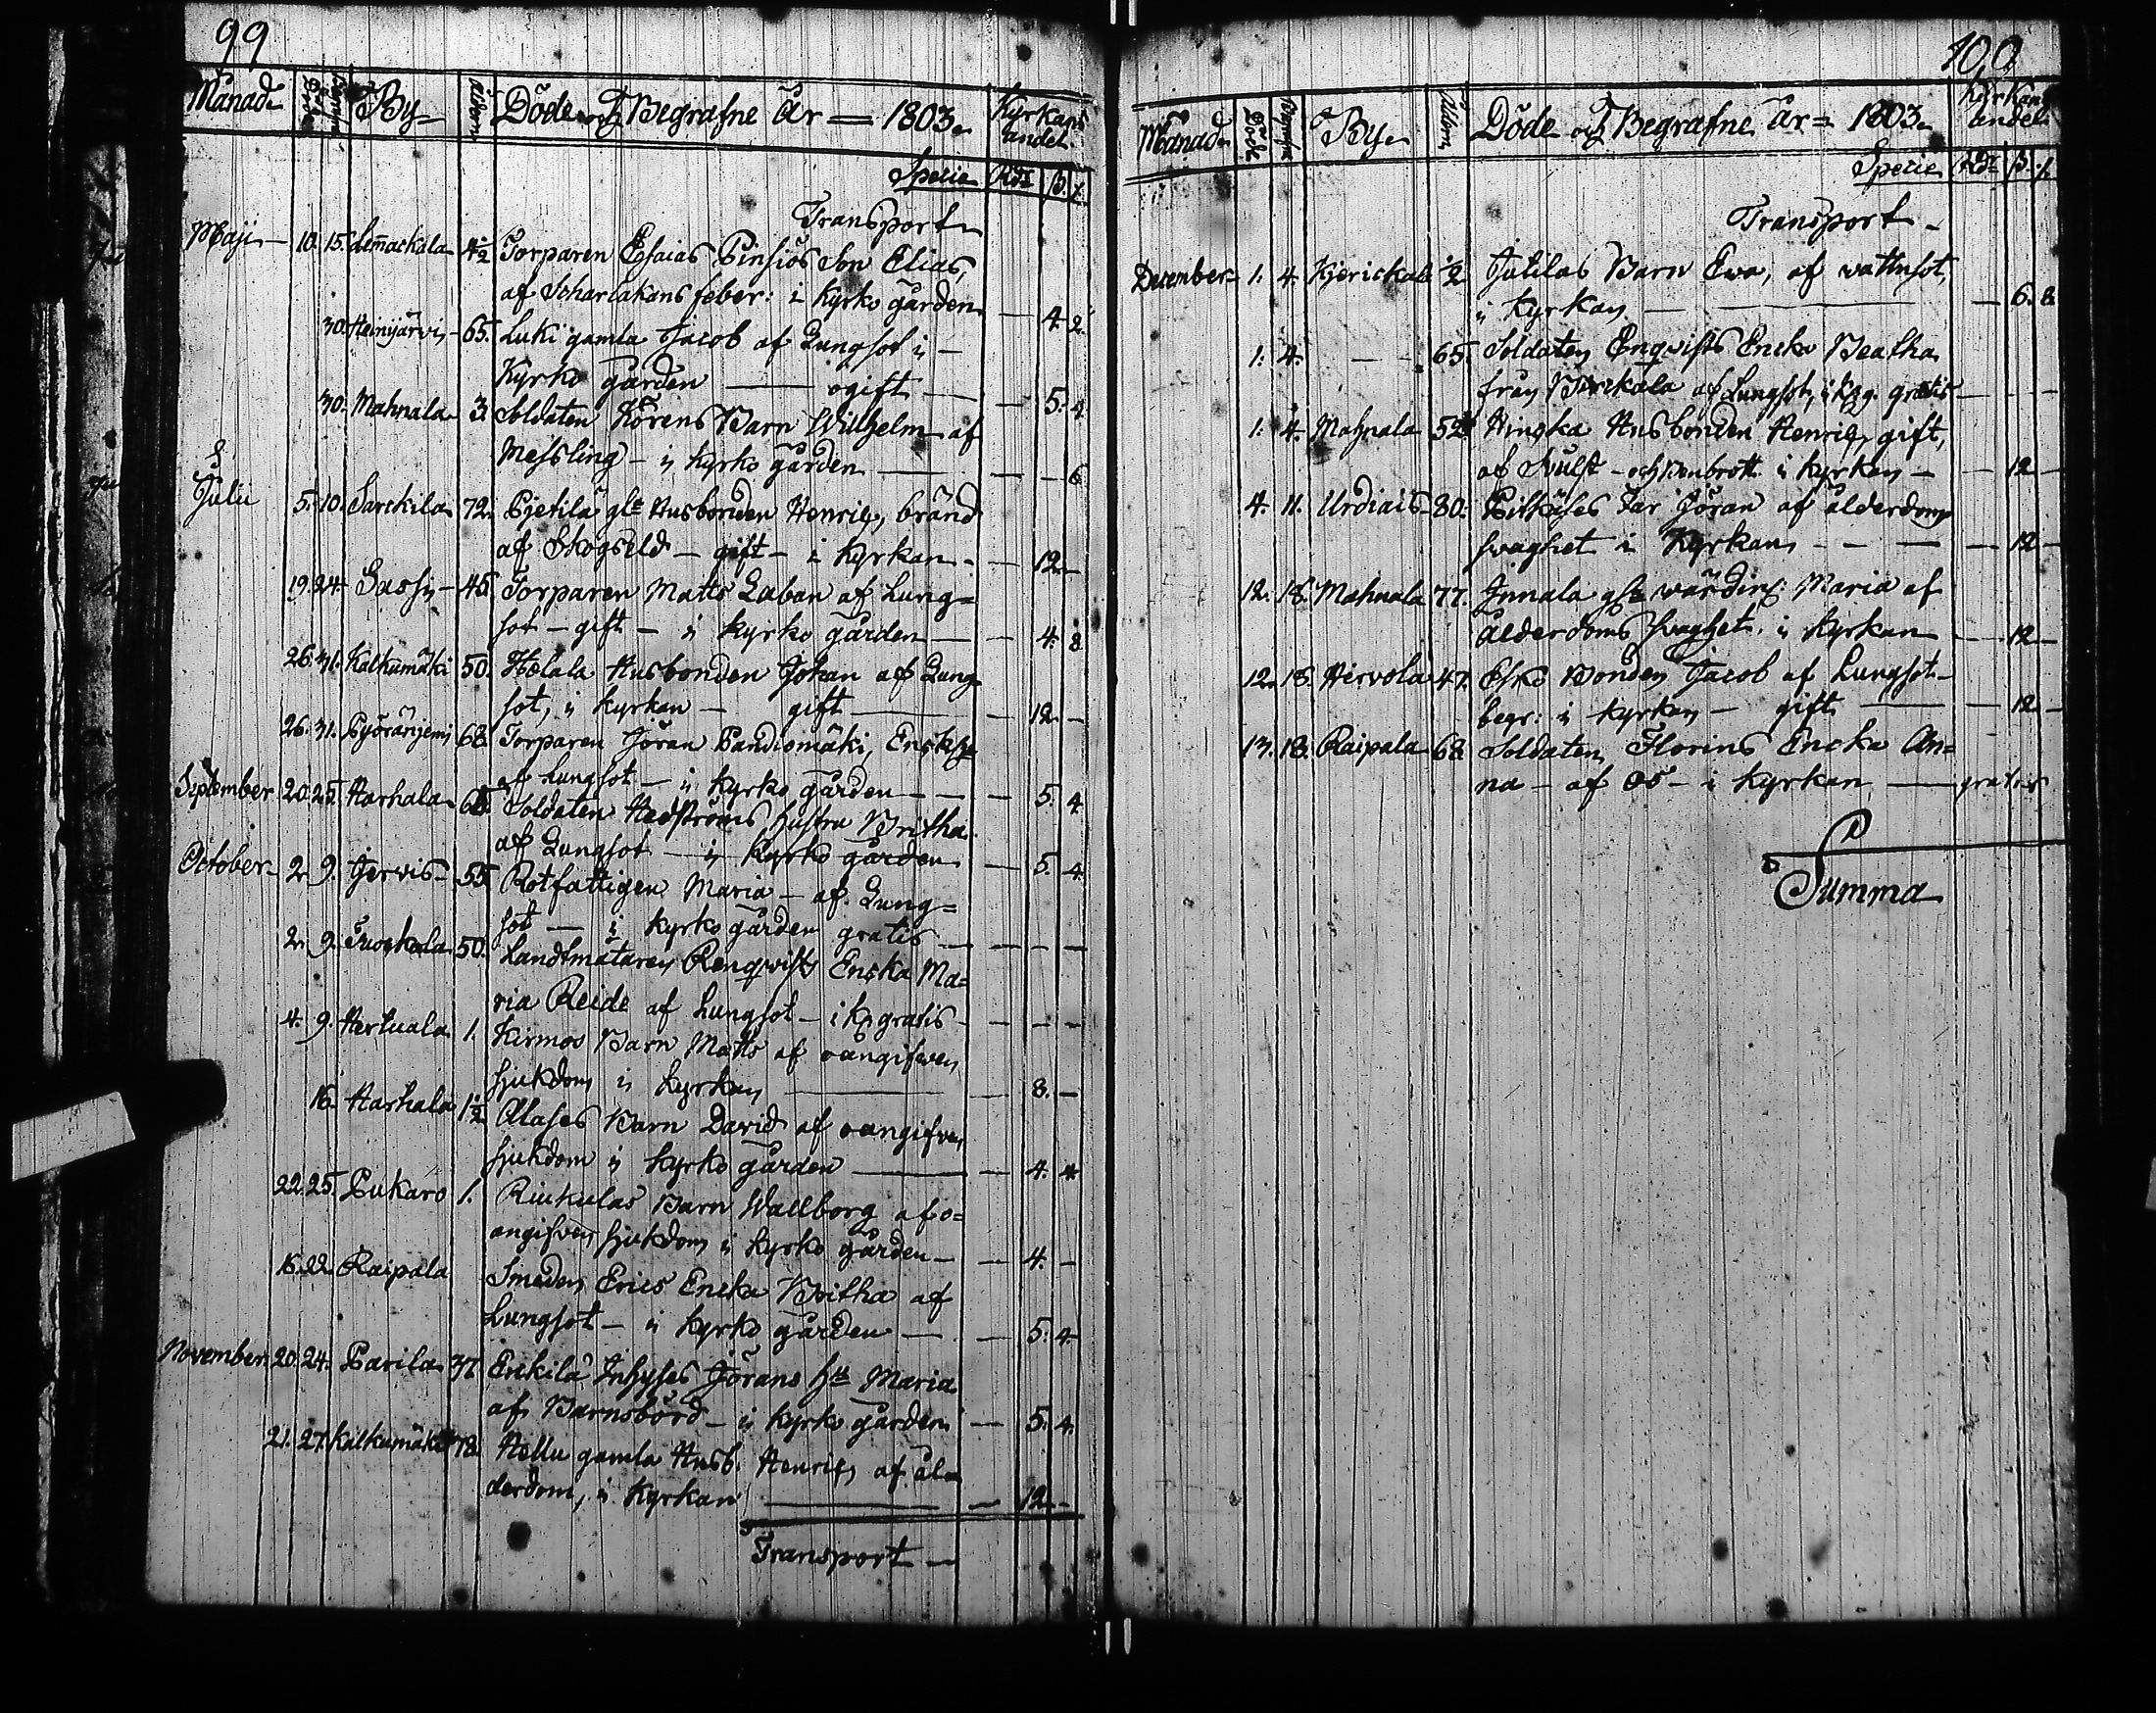 99
Månad Döde Begrafne By Åldern Döde och Begrafne År = 1803. Kyrkans andel
Specie Rdr ß. r.
Transport
Maji 10. 15. Lemackala 4 1/2 Torparen Esaias Pinsiös Son Elias,
af Scharlakans feber: i Kyrko gården — 4. 2.
30. Heinijärvi 65. Luki gamla Jacob af Lungsot i
Kyrko gården — ogift — 5. 4.
30. Mahnala 3. Soldaten Körens Barn Wilhelm af
Messling — i Kyrko gården — — 6
Julii 5. 10. Sarckila 72. Pjetilä gle Husbonden Henric, bränd
af Skogseld — gift — i Kyrkan — 12. —
19. 24. Sassi 45. Torparen Matts Laban af Lung=
sot — gift — i Kyrko gården — 4. 8
26. 31. Kalkumäki 50. Holala Husbonden Johan af Lung=
sot, i Kyrkan — gift — 12. —
26. 31. Pyöräniemi 68. Torparen Jöran Pandiomäki, Enckl:
af Lungsot — i Kyrko gården — — 5. 4
September 20. 25. Harhala Soldaten Hedströms hustru Britha
af Lungsot — i Kyrko gården — 5. 4.
October 2. 9. Jervis 55 Rotfattigen Maria — af Lung=
sot — i Kyrko gården gratis — — —
2. 9. Tuorkola 50. Landtmätaren Renqvists Encka Ma=
ria Reide af Lungsot — i Kg gratis — — —
4. 9. Hertuala 1. Kirmos Barn Matts af oangifven
sjukdom i Kyrkan — 8. —
16. Harhala 1 1/2 Alases Barn David af oangifven
sjukdom i Kyrko gården — — 4. 4
22. 25. Pukaro 1. Riukulas Barn Wallborg af o=
angifven sjukdom i Kyrko gården — — 4. —
16. 22. Raipala Smeden Erics Encka Britha af
Lungsot — i Kyrko gården — — 5. 4.
November 20. 24. Parila 37. Enckilä Inhyses Jörans hu Maria
af Barnsbörd — i Kyrko gården — 5. 4.
21. 27. Kalkumäki 78. Hellu gamla Husb. Henric af ål=
derdom, i Kyrkan — 12. —
Transport
100
Månad Döde Begrafne By Ålldern Döde och Begrafne År = 1803. Kyrkans andel
Specie Rdr ß. r.
Transport
December 1. 4. Kjerickala 1/2 Jutilas Barn Ewa, af vattusot,
i Kyrkan — 6. 8.
1. 4. — 65. Soldaten Enqvists Encka Beatha
från Birckala af Lungsot, i Kg. gratis — — —
1. 4. Mahnala 52 Hingka Husbonden Henric, gift,
af Svulst — och Benbrott i Kyrkan — — 12 —
4. 11. Urdiais 80. Pitkäses Far Jöran af ålderdoms
svaghet i Kyrkan — — — 12 —
12. 18. Mahnala 77. Innala gla värdin: Maria af
ålderdoms svaghet, i Kyrkan — 12 —
12. 18. Hirvola 47. Esko Bonden Jacob af Lungsot
begr: i Kyrkan — gift — 12 —
13. 18. Raipala 68 Soldaten Florins Encka An=
na — af Os — i Kyrkan — gratis
Summa